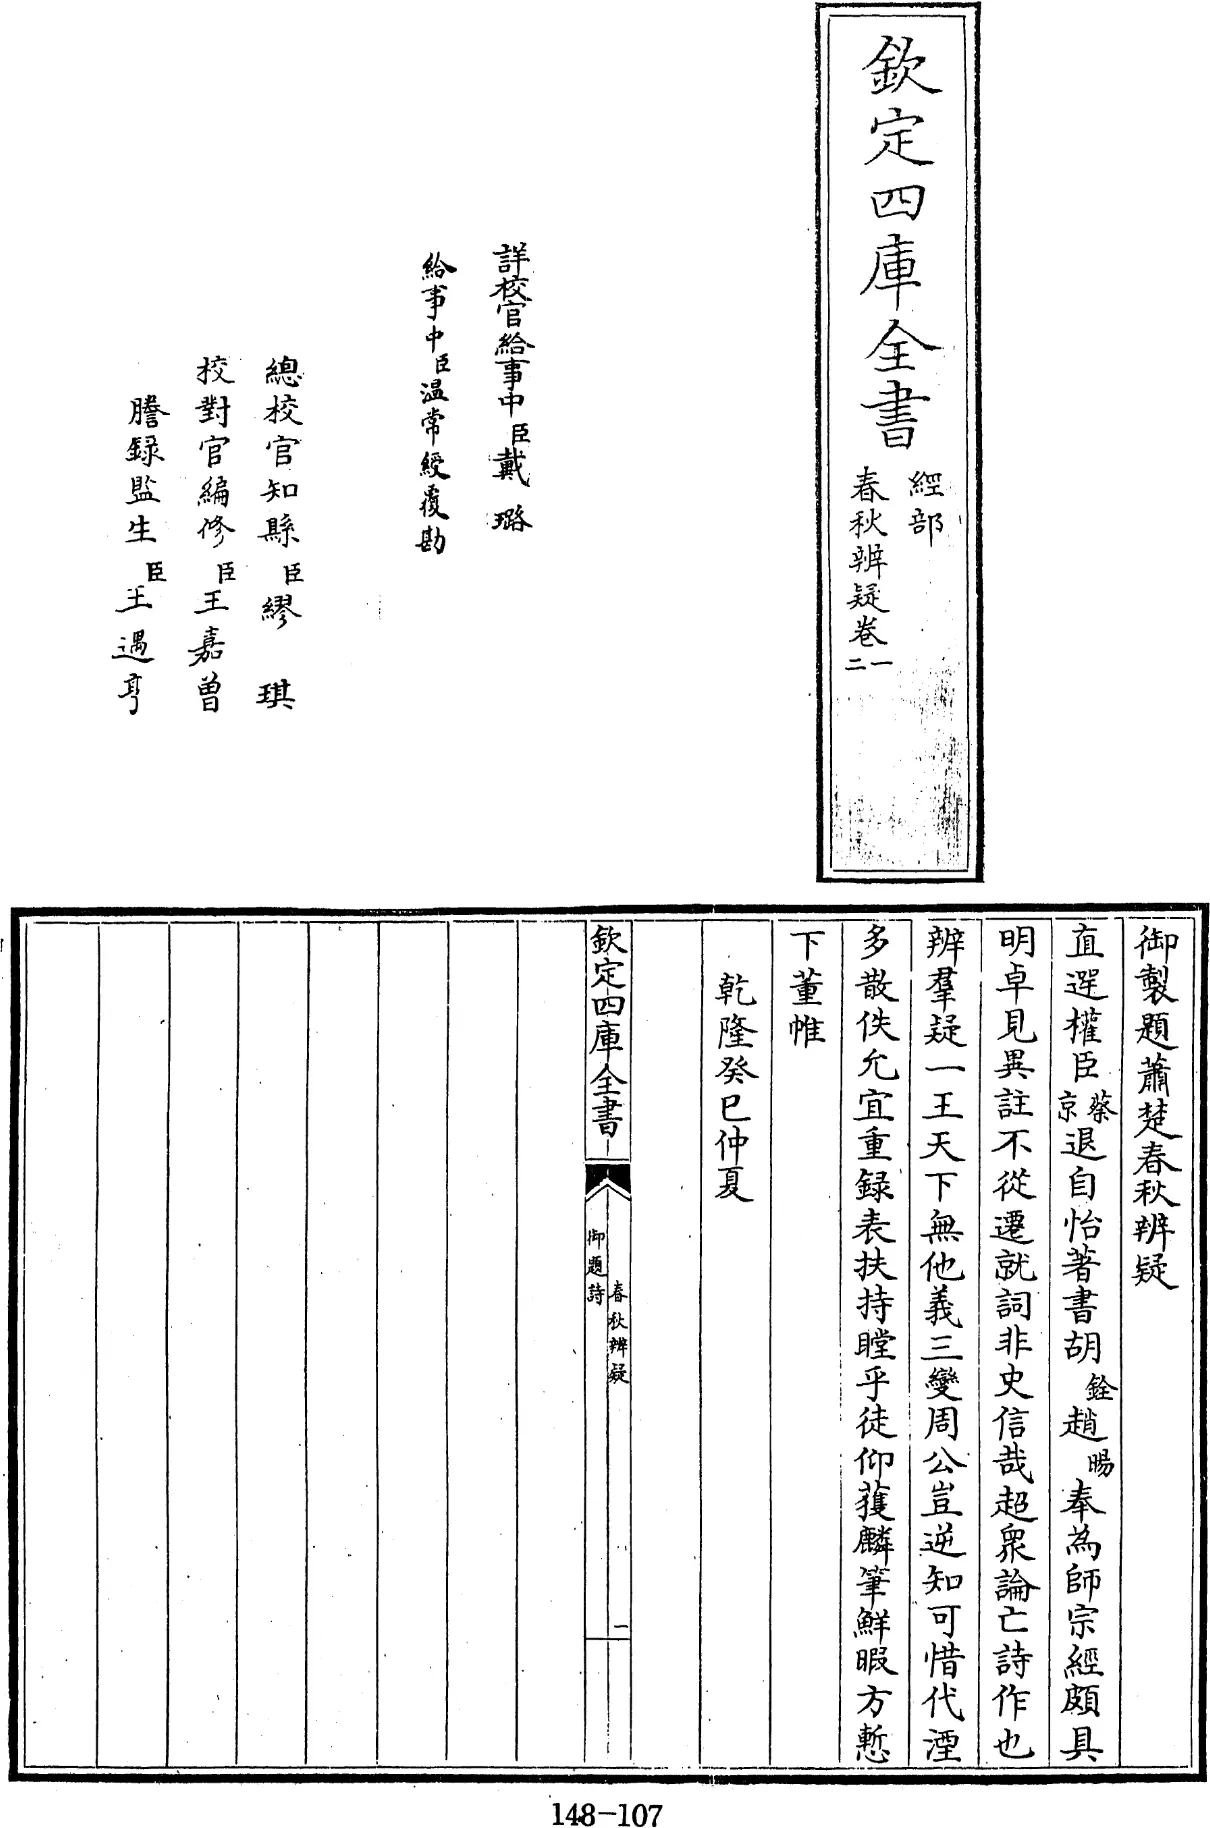 欽定四庫全書
經部
春秋辨疑卷一
二
詳校官給事中臣戴璐
給事中臣温常綬覆勘
總校官知縣臣繆琪
校對官編修臣王嘉曾
謄録監生臣王遇亨
御製題蕭楚春秋辨疑
直逕權臣蔡京退自怡著書胡銓趙暘奉為師宗經頗具
明卓見異註不從遷就詞非史信哉超衆論亡詩作也
辨羣疑一王天下無他義三變周公豈逆知可惜代湮
多散佚允宜重録表扶持瞠乎徒仰獲麟筆鮮暇方慙
下董帷
乾隆癸巳仲夏
欽定四庫全書
春秋辨疑
御題詩
一
148-107